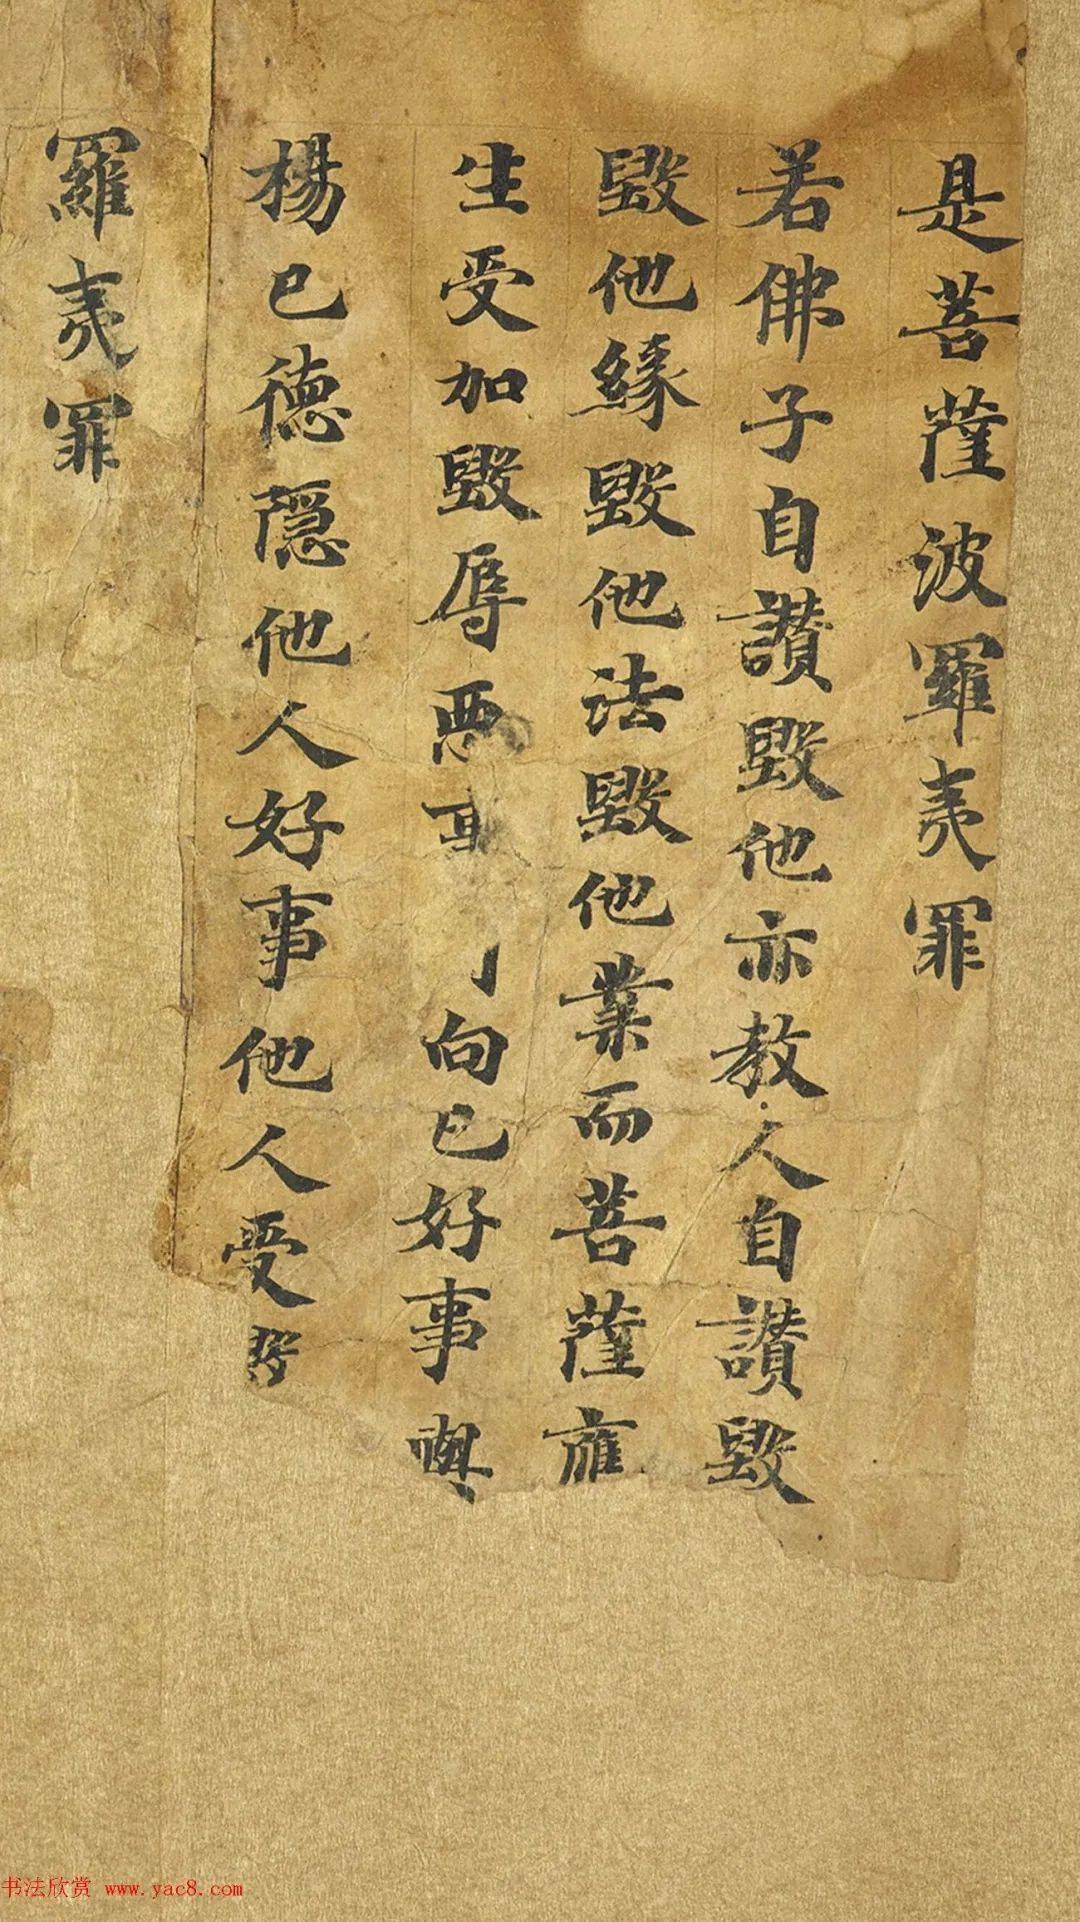 是菩薩波羅夷罪
若佛子自讃毀他亦教人自讃毀
毀他緣毀他法毀他業而菩薩應
生受加毀辱惡事向已好事與
楊已德隱他人好事他人受
羅夷罪
书法欣赏 www.yac8.com